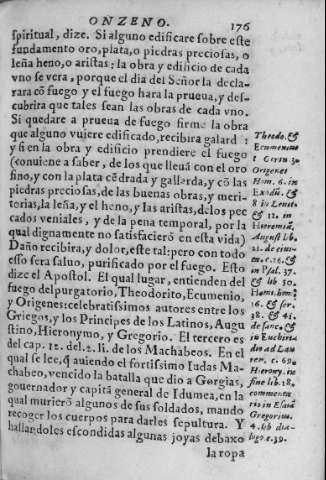 ONZENO. 176
spiritual, dize. Si alguno edificare sobre este
fundamento oro, plata, o piedras preciosas, o
leña heno, o aristas; la obra y edificio de cada
vno se vera, porque el dia del Señor la decla-
rara cõ fuego y el fuego hara la prueua, y des-
cubrira que tales sean las obras de cada vno.
Si quedare a prueua de fuego firme la obra
que alguno vuiere edificado, recibira galard
y si en la obra y edificio prendiere el fuego
(conuiene a saber, de los que lleuã con el oro
sino, y con la plata cẽdrada y gallarda, y cõ las
piedras preciosas, de las buenas obras, y meri-
torias, la leña, y el heno, y las aristas, de los pec
cados veniales, y de la pena temporal, por la
qual dignamente no satisfacierõ en esta vida)
Daño recibira, y dolor, este tal: pero con todo
esso sera saluo, purificado por el fuego. Esto
dize el Apostol. El qual lugar, entienden del
fuego del purgatorio, Theodorito, Ecumenio,
y Origenes: celebratissimos autores entre los
Griegos, y los Principes de los Latinos, Augu
stino, Hieronymo, y Gregorio. El tercero es
del cap. 12. del. 2. li. de los Machabeos. En el
qual se lee, q̃ auiendo el fortissimo Iudas Ma-
chabeo, vencido la batalla que dio a Gorgias,
gouernador y capitã general de Idumea, en la
qual murierõ algunos de sus soldados, mando
recoger los cuerpos para darles sepultura. Y
hallandoles escondidas algunas joyas debaxo
la ropa
Theodo. &
Ecumenius
1 Corin. 3.
Origenes
Hom. 6. in
Exodũ. &
8 in Leuit.
& 12. in
Hieremiã,
August. lib.
21. de ciui-
in Psal. 37.
& lib 50.
Hom. hom.
16. & ser.
38. & 41.
de sanc. &
in Enchiri
dio ad Lau
ren. c. 69.
Hierony. in
fine lib. 18.
commenta
rio in Esaiã
Gregorius.
4. lib dia-
logo c. 39.